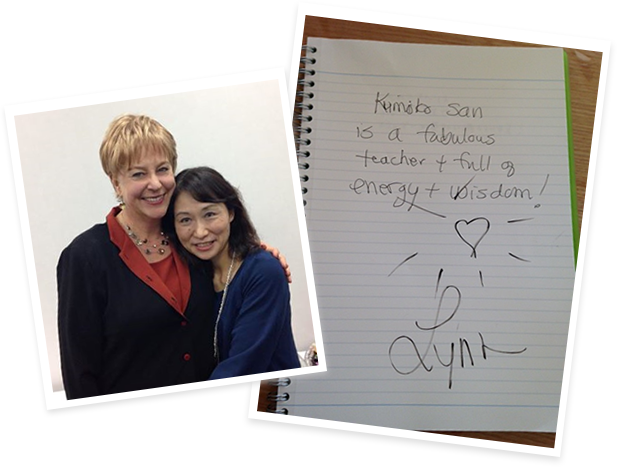 Kumiko san
is a fabulous
teacher + full of
energy + Wisdom!
Lynn